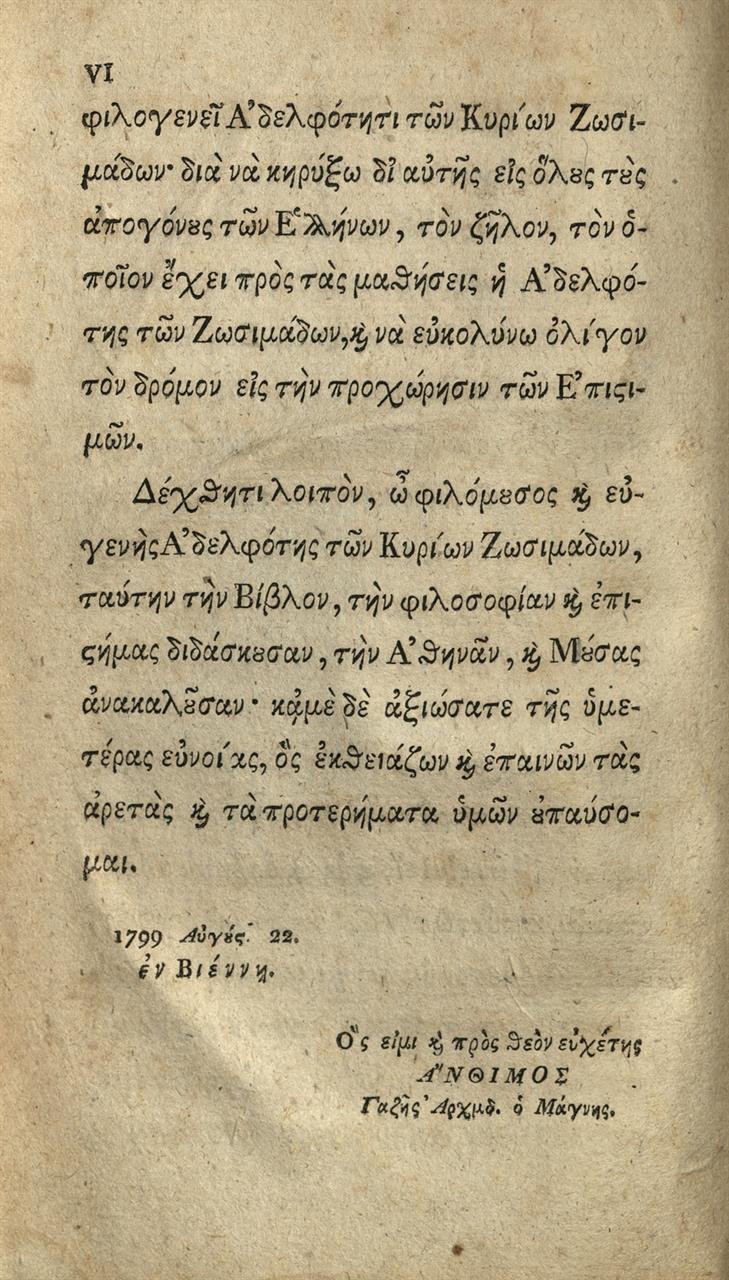 VI
φιλογενεῖ Ἀδελφότητι τῶν Κυρίων Ζωσι-
μάδων· διὰ νὰ κηρύξω δἰ αὐτῆς εἰς ὅλȣς τȣ̀ς
ἀπογόνȣς τῶν Ἑλλήνων, τὸν ζῆλον, τὸν ὁ-
ποῖον ἔχει πρὸς τὰς μαθήσεις ἡ Ἀδελφό-
της τῶν Ζωσιμάδων, ϗ νὰ εὐκολύνω ὀλίγον
τὸν δρόμον εἰς τὴν προχώρησιν τῶν Ἐπιϛι-
μῶν.
Δέχθητι λοιπὸν, ὦ φιλόμȣσος ϗ εὐ-
γενὴς Ἀδελφότης τῶν Κυρίων Ζωσιμάδων,
ταύτην τὴν Βίβλον, τὴν φιλοσοφίαν ϗ ἐπι-
ϛήμας διδάσκȣσαν, τὴν Ἀθηνᾶν, ϗ Μȣ́σας
ἀνακαλȣ͂σαν· κᾀμὲ δὲ ἀξιώσατε τῆς ὑμε-
τέρας εὐνοίας, ὃς ἐκθειάζων ϗ ἐπαινῶν τὰς
ἀρετὰς ϗ τὰ προτερήματα ὑμῶν ȣ̓παύσο-
μαι.
1799 Αὐγȣ́ϛ. 22.
ἐν Βιέννῃ.
Ὃς εἰμι ϗ πρὸς θεὸν εὐχέτης
ἌΝΘΙΜΟΣ
Γαζῆς Ἀρχμδ. ὁ Μάγνης.